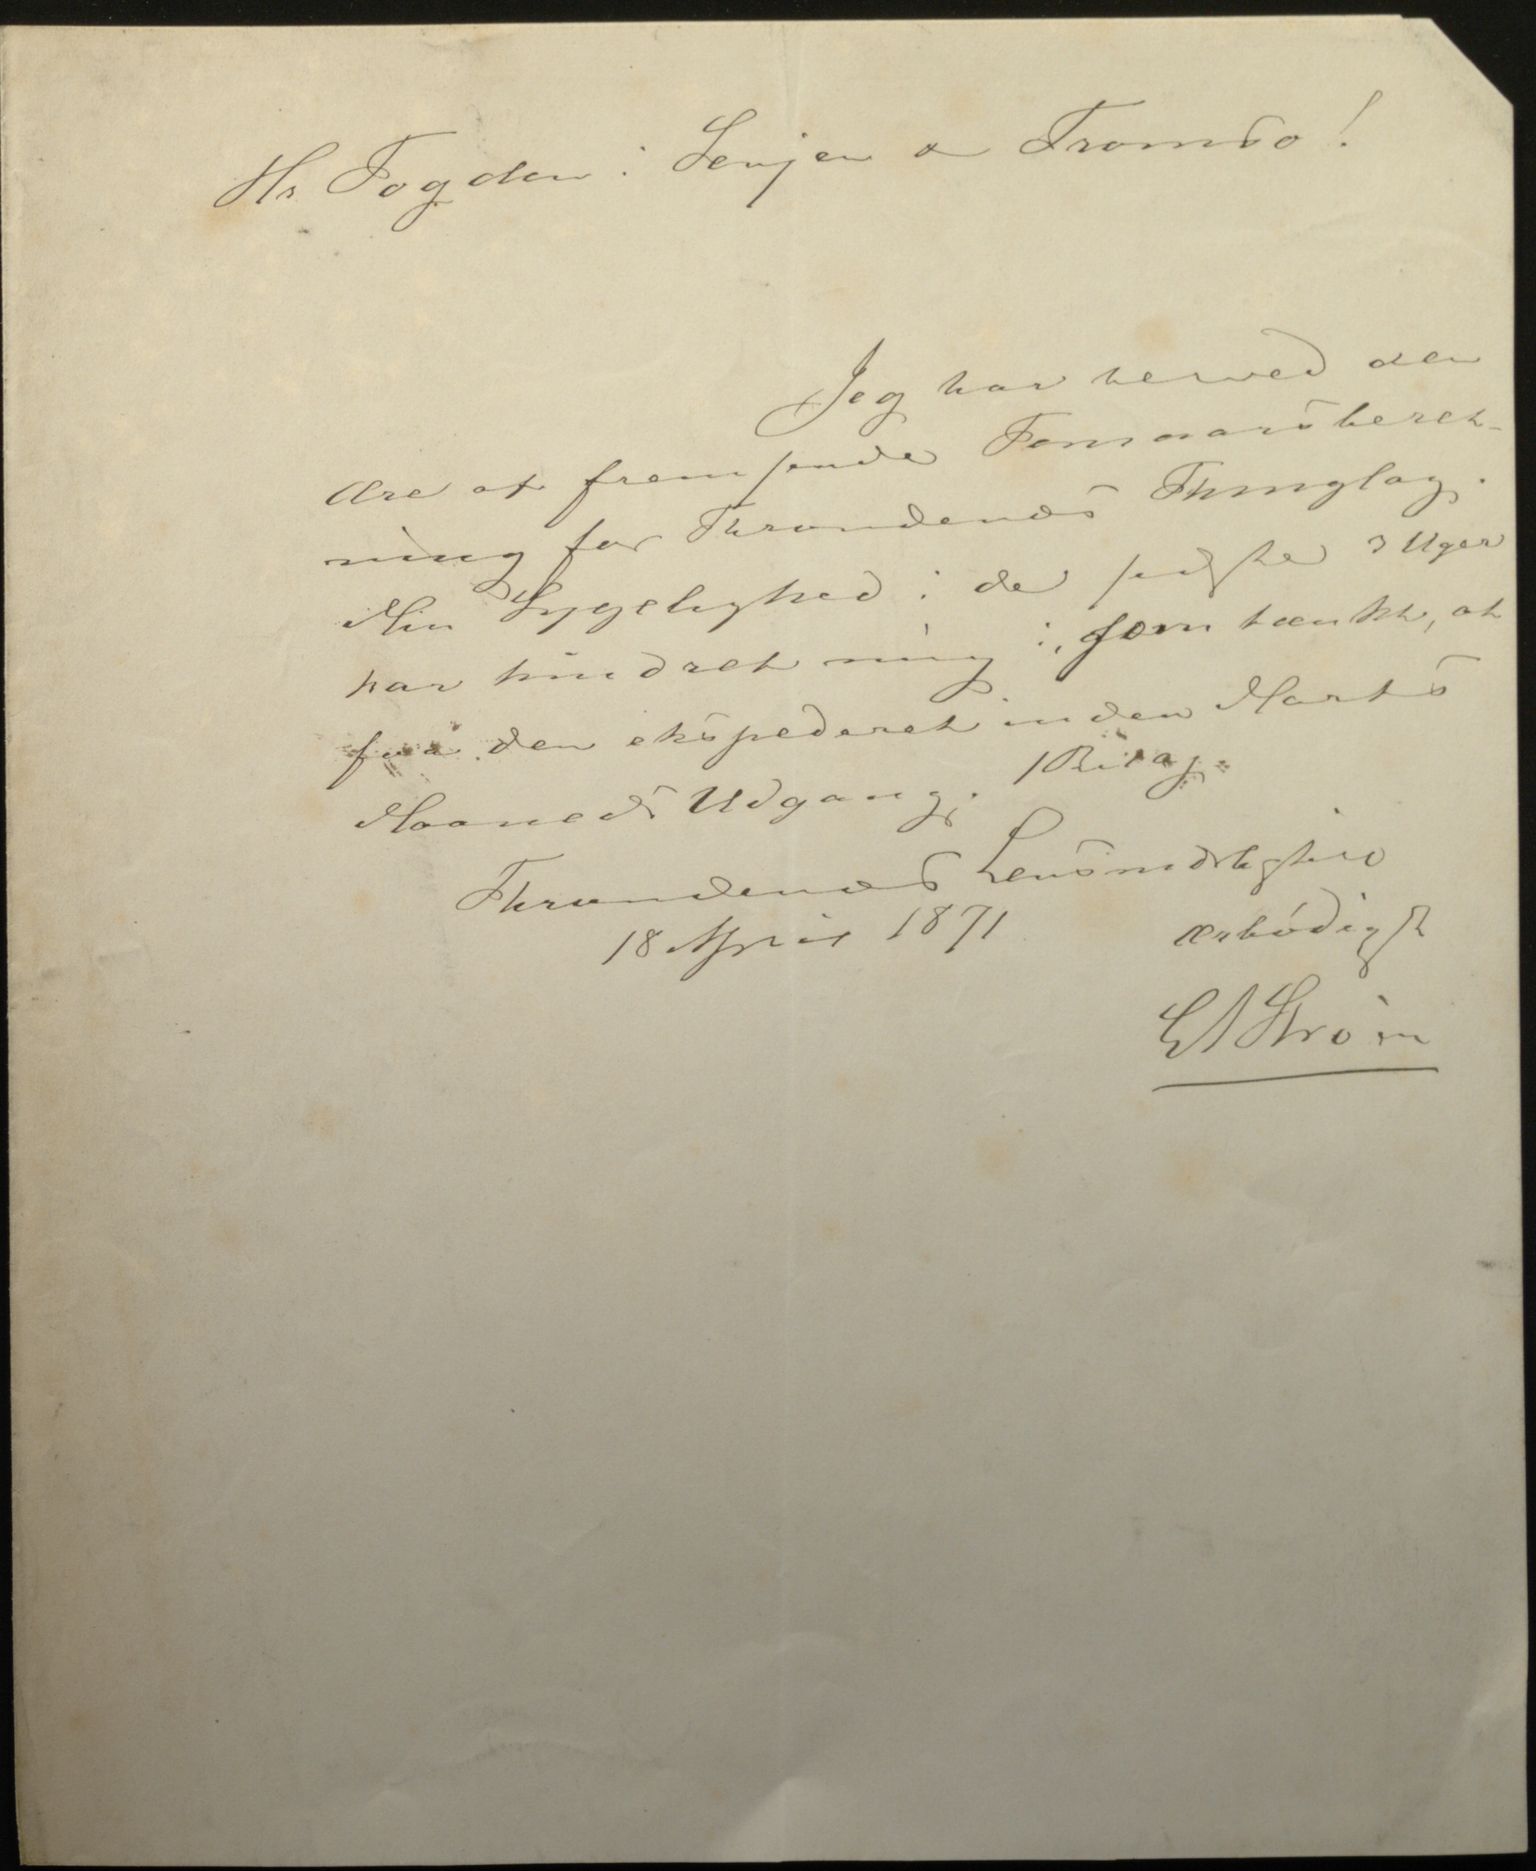 Hr Fogden i Senjen & Tromsø!
Jeg har herved den
Ære at fremsende Femaarsberet-
ning for Throndenæs Thinglag.
Min Sygelighed i de sidste 3 Uger
har hindret mig i, som tænkt, at
faa den ekspederet inden Marts
Maaneds Udgang. 1 Bilag.
Throndenæs Lensmdbestil
18 April 1871 ærbødigst
Ström